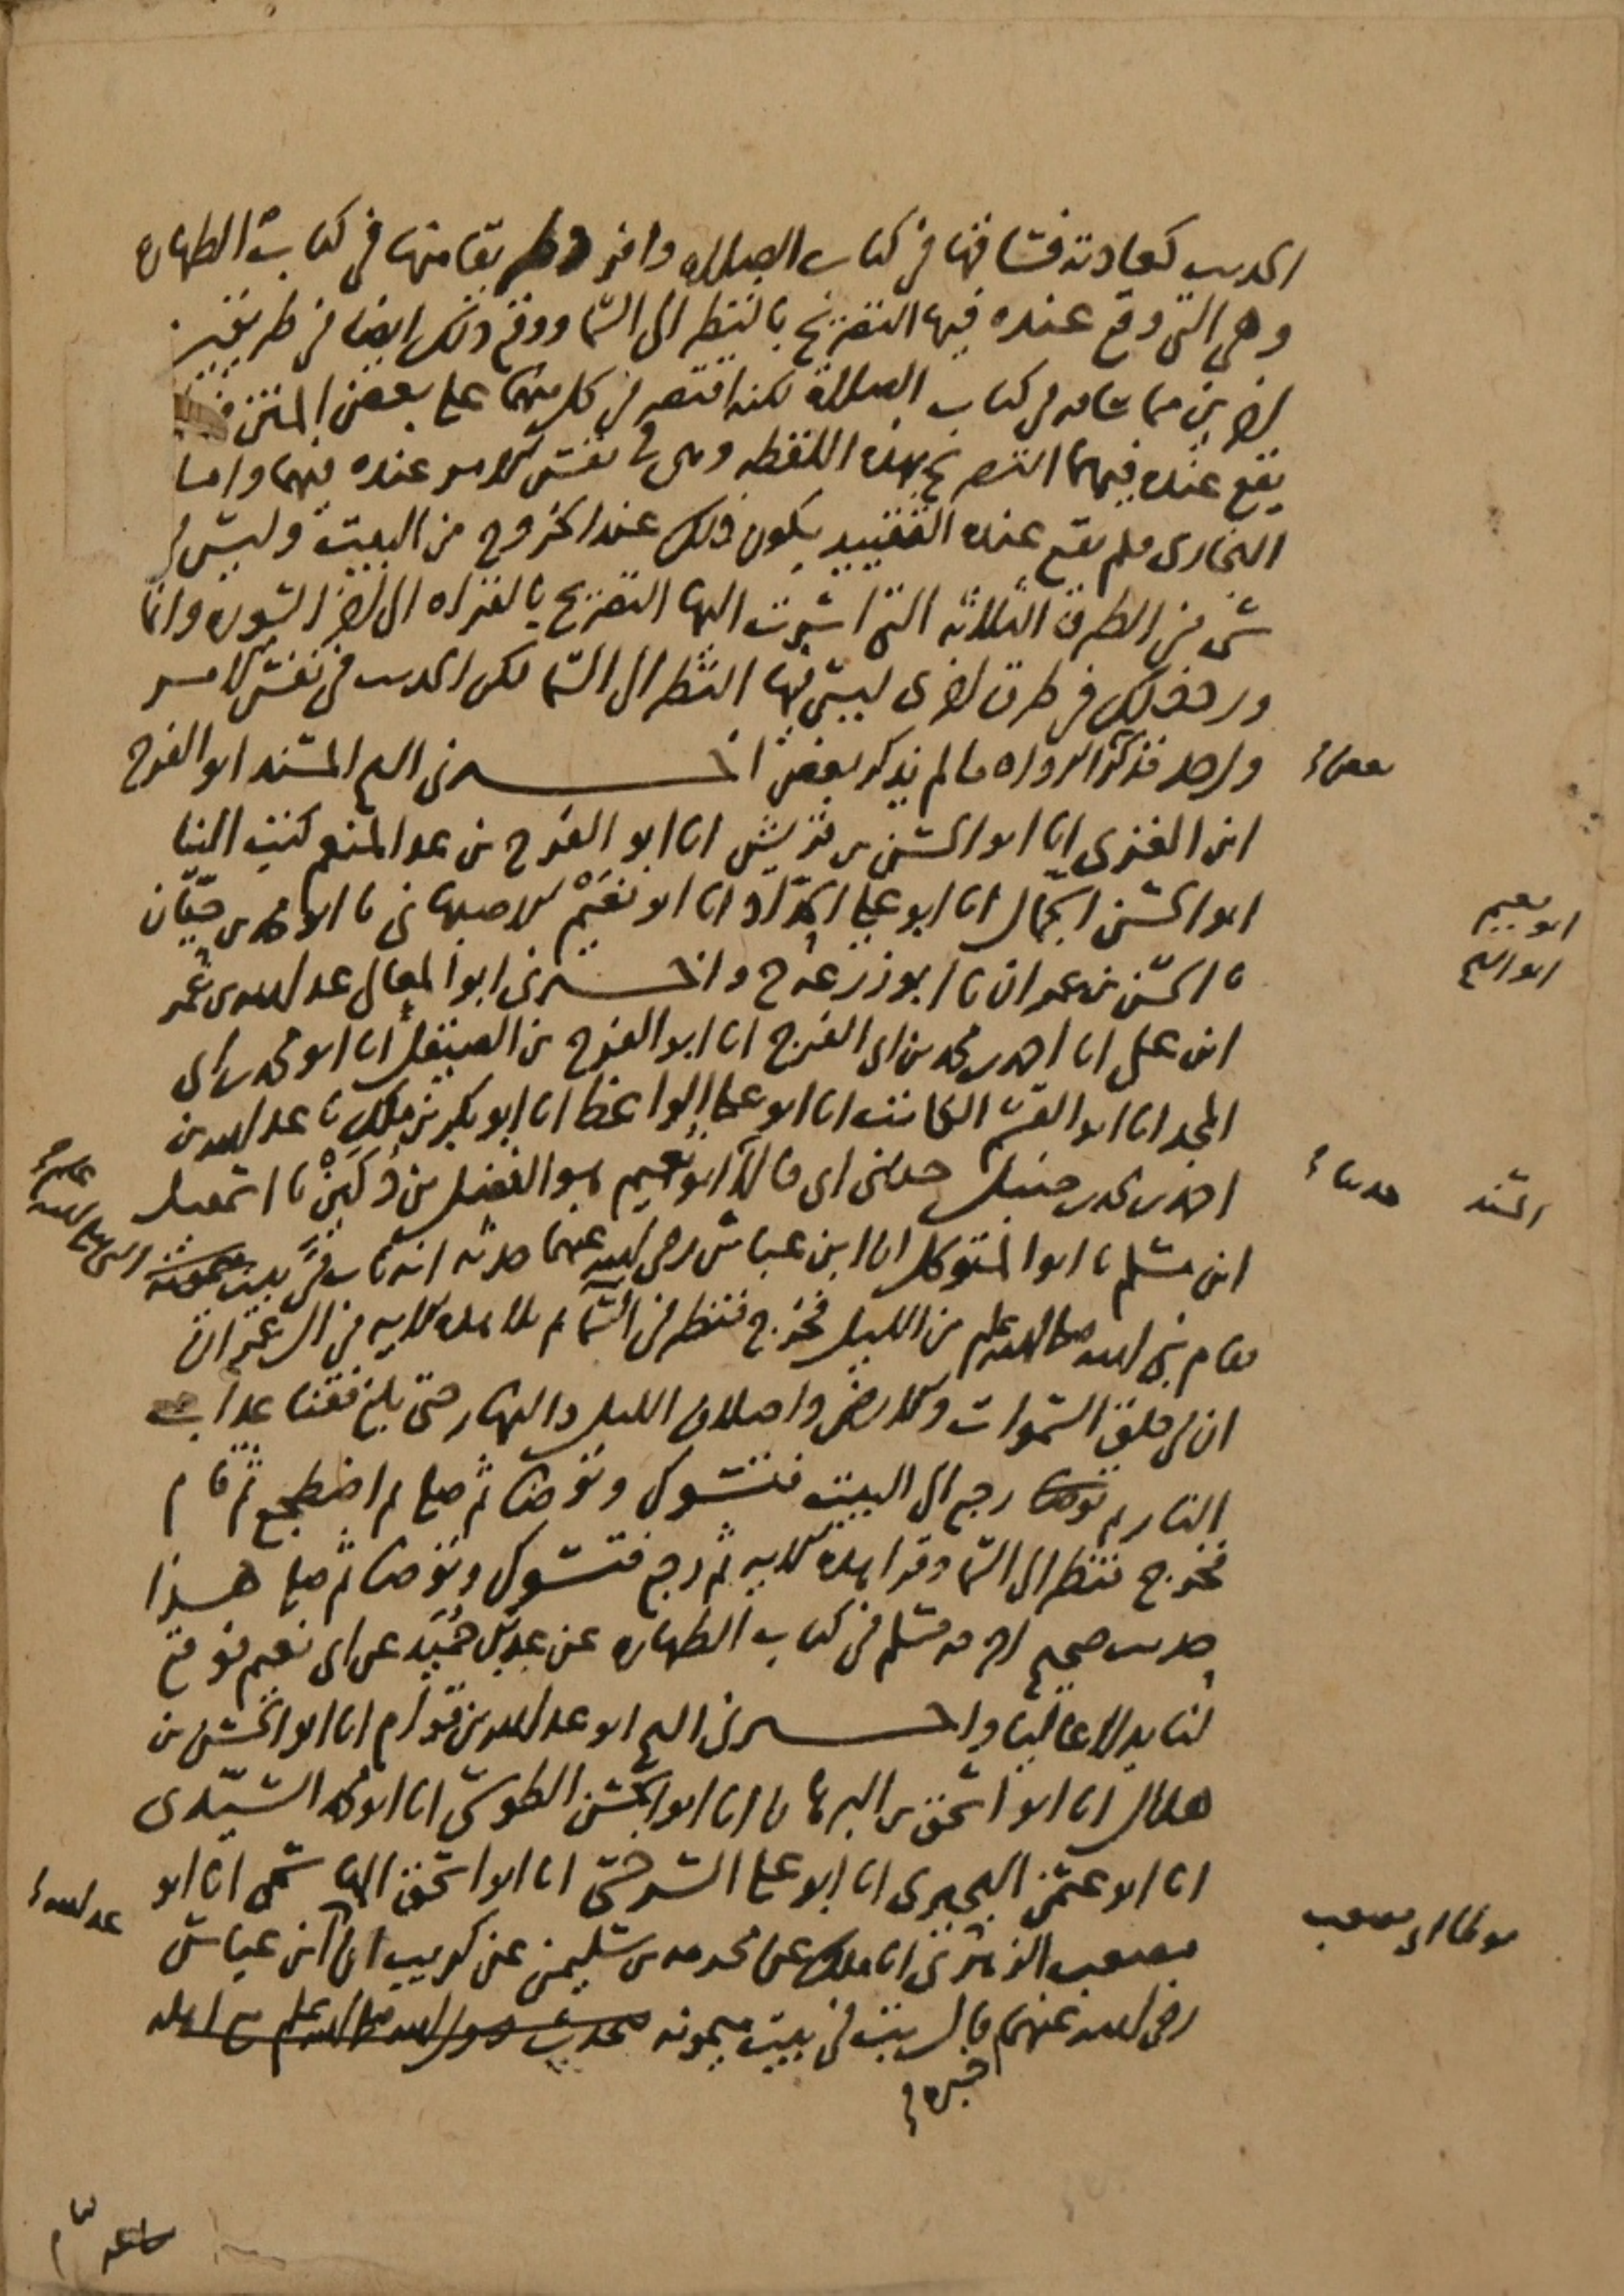 الحديث كعادته فساقها في كتاب الصلاة وافرد طريقا منها في كتاب الطهاره
وهي التي وقع عنده فيها التصريح بالنظر الى السما ووقع ذلك ايضا في طريقين
اخريين مما ساقه في كتاب الصلاة لكنه اقتصر في كل منهما على بعض المتن فلم
يقع عنده فيهما التصريح بهذه اللفظه وهي في نفس الامر عنده فيهما واما
البخاري فلم يقع عنده التقييد بكون ذلك عند الخروج من البيت وليس في
شي من الطرق الثلاثه التي اشرت اليها التصريح بالقراه الى اخر السوره وانما
ورد ذلك في طرق اخرى ليس فيها النظر الى السما لكن الحديث في نفس الامر
واحد فذكر الرواه ما لم يذكر بعض اخبرني الشيخ المسند ابو الفرج
بعض
ابن الغزي انا ابو الحسن بن قريش انا ابو الفرج بن عبد المنعم كتب الينا
ابو الحسن الجمال انا ابو علي الحداد انا ابو نعيم الاصبهاني نا ابو محمد بن حيان
ابو نعيم
ابو الشيخ
نا الحسن بن عمران نا ابو زرعة ح واخبرني ابو المعالي عبد الله بن عمر
ابن علي انا احمد بن محمد بن ابي الفرج انا ابو الفرج بن الصيقل انا ابو محمد بن ابي
المجد انا ابو القسم الكاتب انا ابو علي الواعظ انا ابو بكر بن ملك نا عبد الله بن
احمد بن محمد بن حنبل حدثني ابي قالا ابو نعيم هو الفضل بن دكين نا اسمعيل
حدثنا
المسند
ابن مسلم نا ابو المتوكل انا ابن عباس رضي الله عنهما حدثه انه بات في بيت ميمونة
النبي صلى الله عليه وسلم
فقام نبي الله صلى الله عليه وسلم من الليل فخرج فنظر في السماء ثم تلا هذه الايه في ال عمران
ان في خلق السموات والارض واختلاف الليل والنهار حتى بلغ فقنا عذاب
النار ثم توضا رجع الى البيت فتسوك وتوضا ثم صلى ثم اضطجع ثم قام
فخرج فنظر الى السما وقرا هذه الايه ثم رجع فتسوك وتوضا ثم صلى هذا
حديث صحيح اخرجه مسلم في كتاب الطهاره عن عبد بن حميد عن ابي نعيم فوقع
لنا بدلا عاليا واخبرني الشيخ ابو عبد الله بن قوام انا ابو الحسن بن
هلال انا ابو اسحق بن البرهان انا ابو الحسن الطوسي انا ابو محمد السيدي
انا ابو عثمن البحيري انا ابو علي السرخسي انا ابو اسحق الهاشمي انا ابو
مصعب الزهري انا ملك عن مخرمه بن سليمن عن كريب ان ابن عباس
موطا ابي مصعب
عبد الله
رضي الله عنهما قال بت في بيت ميمونه فتحدث رسول الله صلى الله عليه وسلم مع اهله
اخبره
ساعة ثم نام